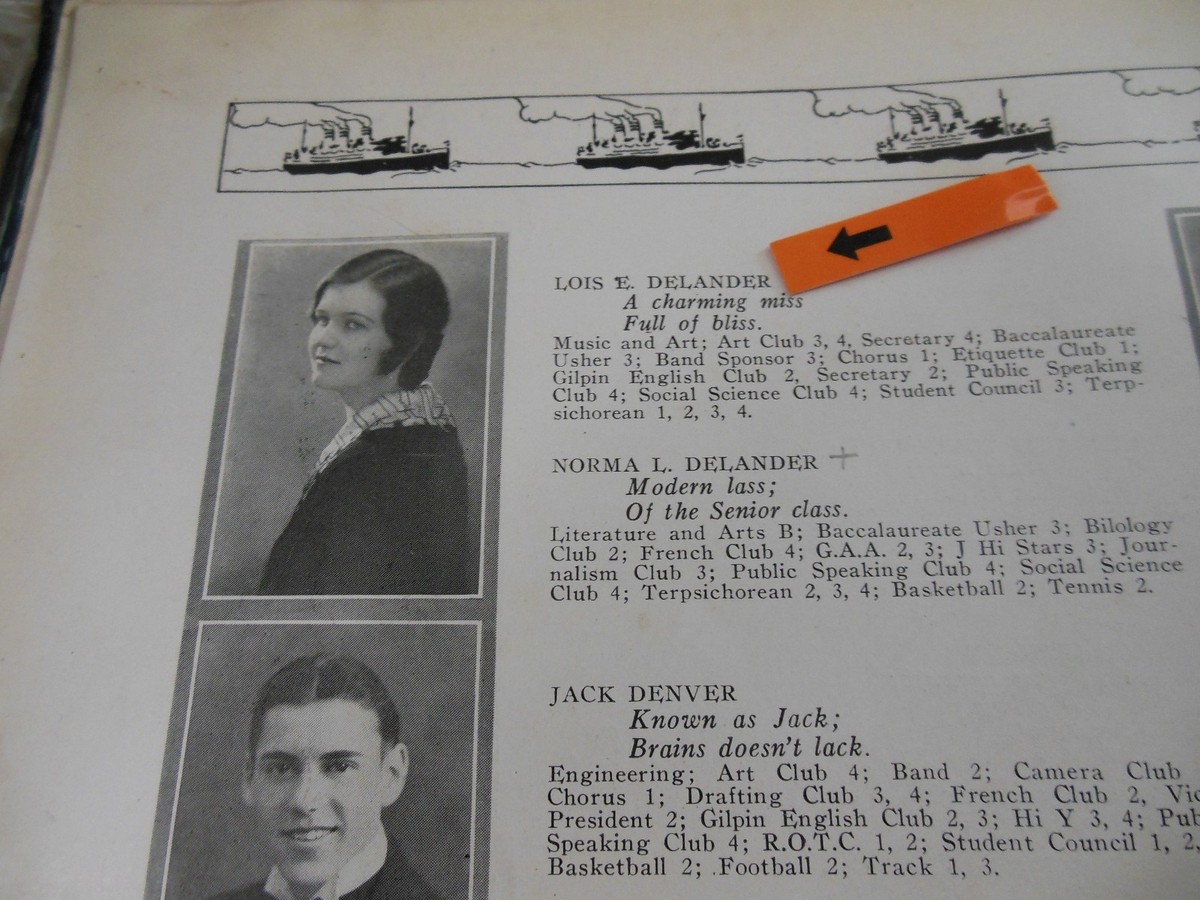 LOIS E. DELANDER
A charming miss
Full of bliss.
Music and Art; Art Club 3, 4, Secretary 4; Baccalaureate
Usher 3; Band Sponsor 3; Chorus 1; Etiquette Club 1;
Gilpin English Club 2, Secretary 2; Public Speaking
Club 4; Social Science Club 4; Student Council 3; Terp-
sichorean 1, 2, 3, 4.
NORMA L. DELANDER +
Modern lass;
Of the Senior class.
Literature and Arts B; Baccalaureate Usher 3; Bilology
Club 2; French Club 4; G.A.A. 2, 3; J Hi Stars 3; Jour-
nalism Club 3; Public Speaking Club 4; Social Science
Club 4; Terpsichorean 2, 3, 4; Basketball 2; Tennis 2.
JACK DENVER
Known as Jack;
Brains doesn't lack.
Engineering; Art Club 4; Band 2; Camera Club
Chorus 1; Drafting Club 3, 4; French Club 2, Vic
President 2; Gilpin English Club 2, 3; Hi Y 3, 4; Pub
Speaking Club 4; R.O.T.C. 1, 2; Student Council 1, 2,
Basketball 2; .Football 2; Track 1, 3.